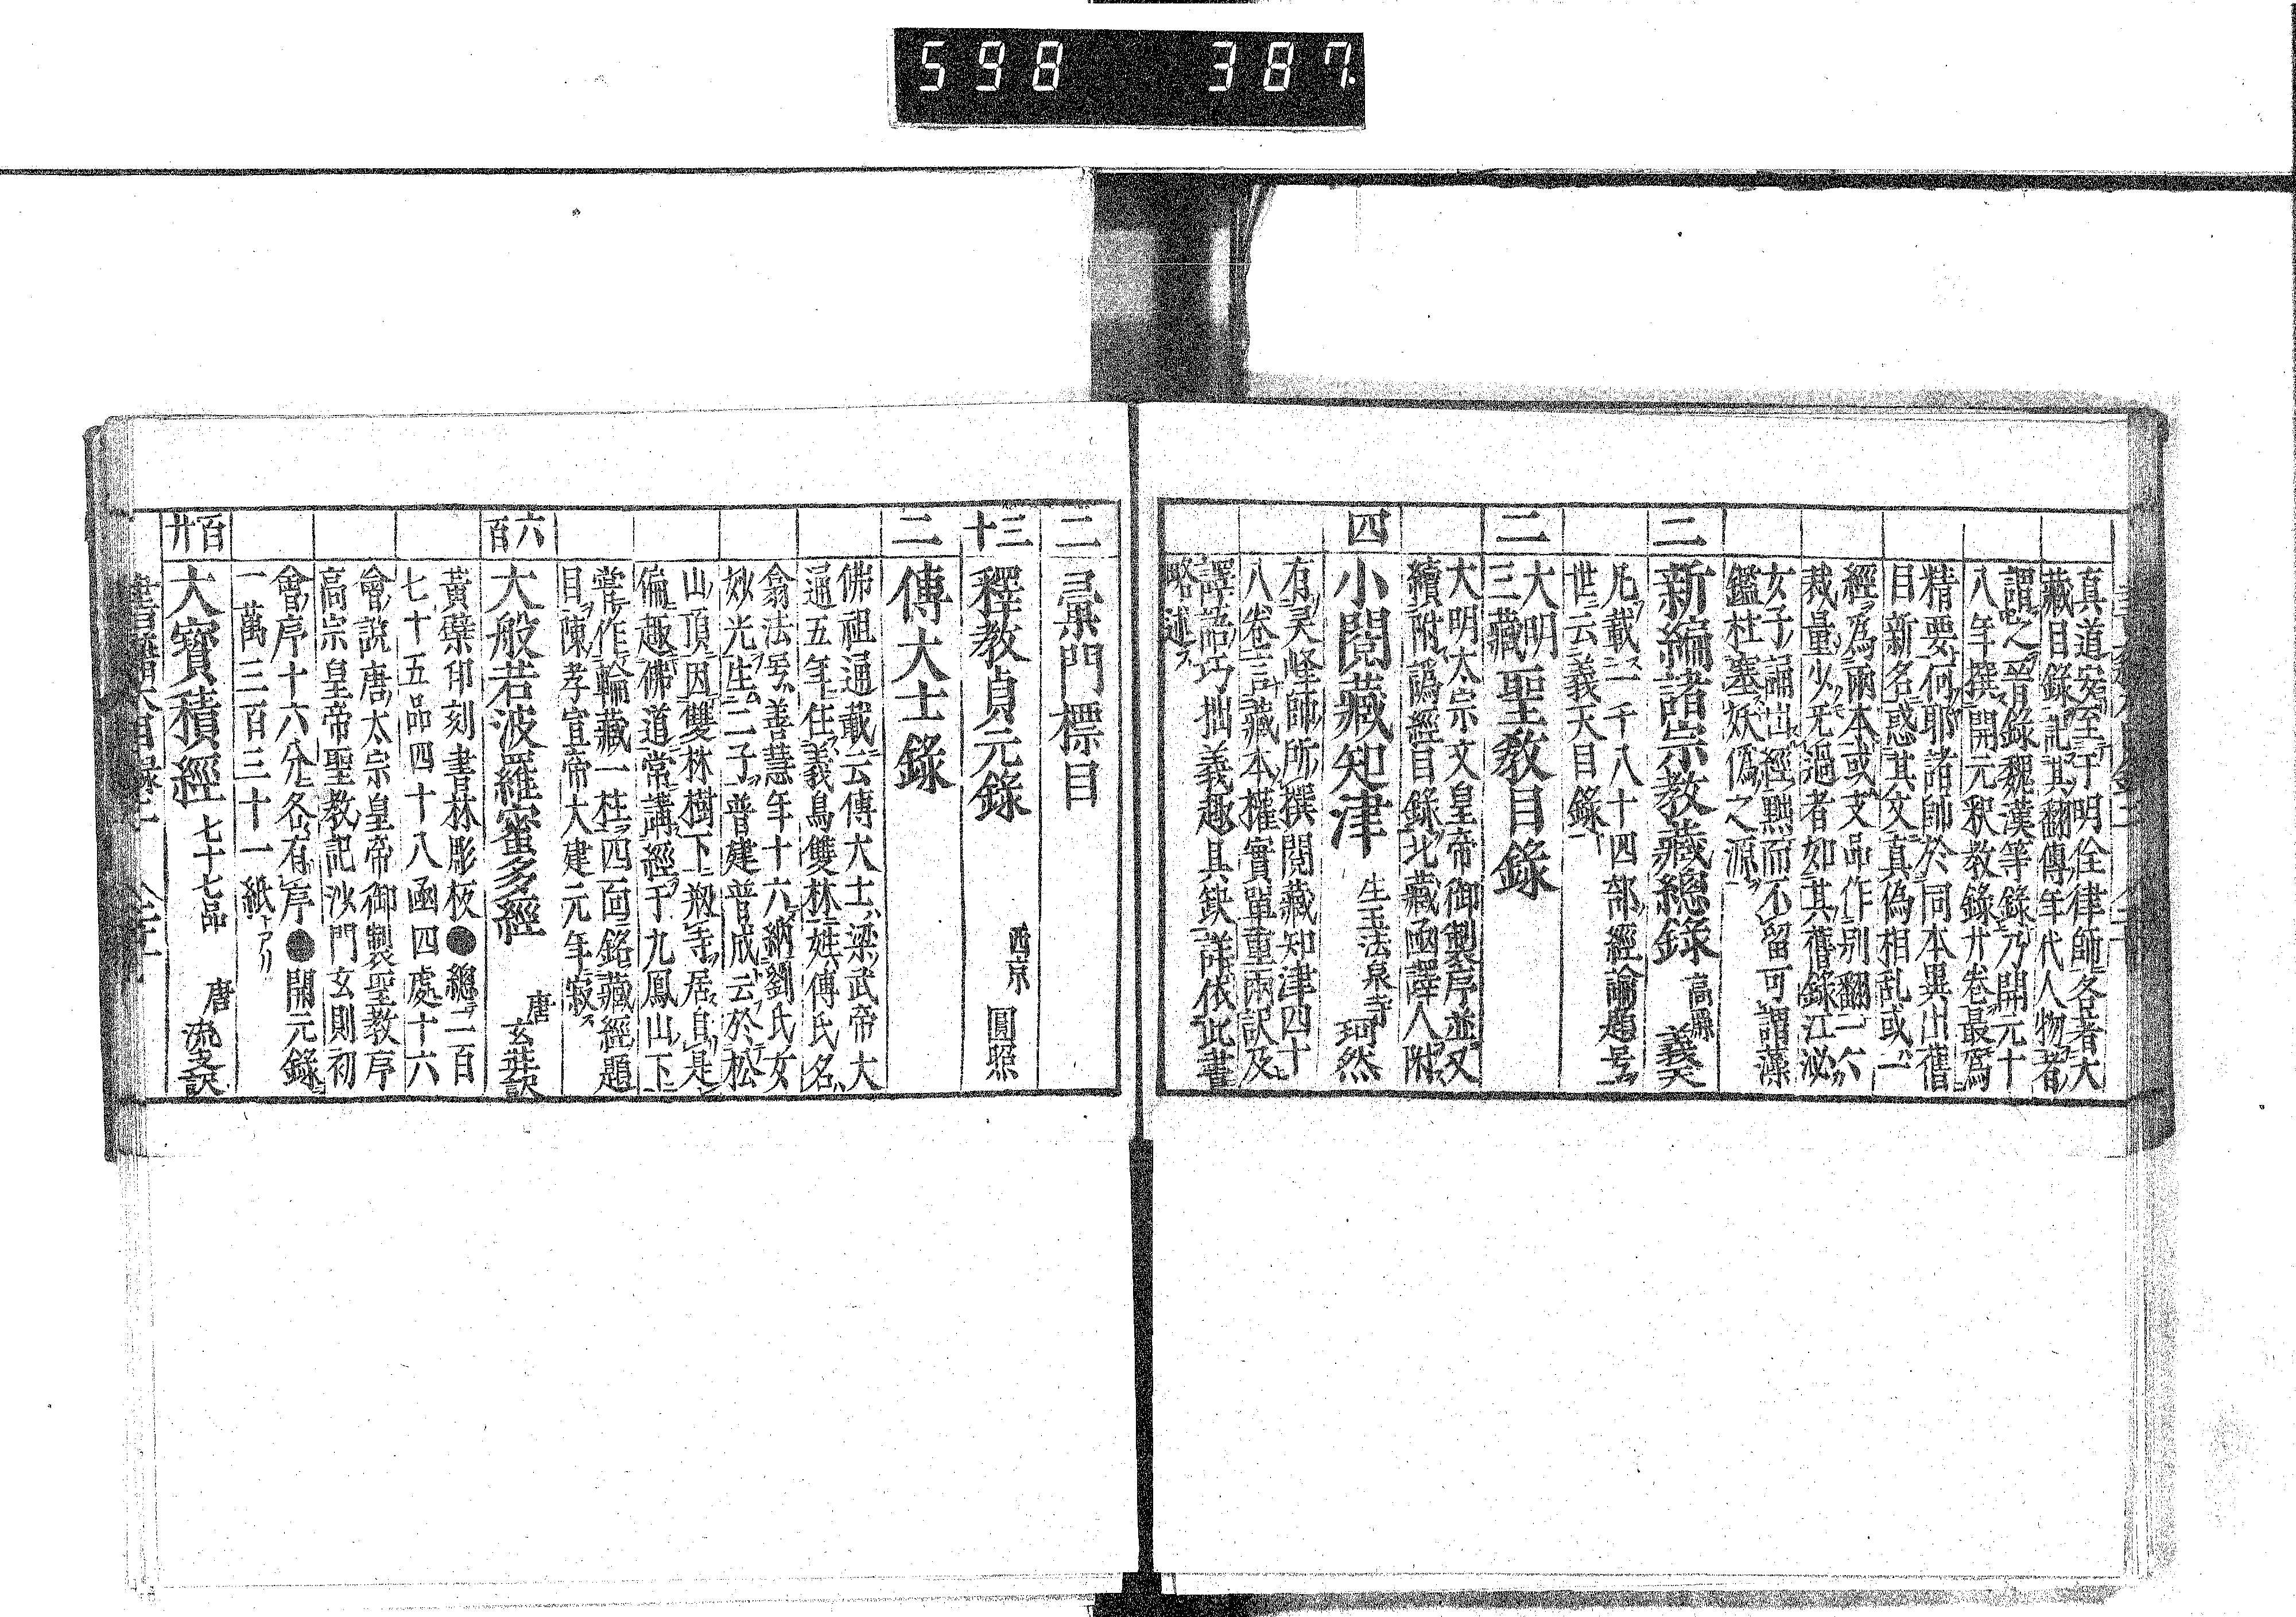 598 387
真道安至于明佺律師各著大
藏目錄記其翻傳年代人物者
謂之晋錄魏漢等錄乃開元十
八年撰開元釈教錄廿卷最爲
精要何耶諸師於同本異出舊
目新名惑其文真偽相乱或一
經爲兩本或支品作別翻一六
裁量少无過者如其舊錄江泌
女子誦出經黜而不留可謂藻
鑑杜塞妖偽之源
三 新編諸宗教藏總錄 高麗 義天
凡載二千八十四部經論題号
世云義天目錄
二 大明三藏聖教目錄
大明太宗文皇帝御製序並又
續附譌經目錄北藏函譯人附
四 小閱藏知津 生玉法泉寺 珂然
有旲蛏師所撰閱藏知津四十
八卷言藏本權實單重兩訳及
譯語巧拙義趣具鈌詳依此書
略述
二 彙門標目
三十 釋教貞元錄 西京 圓照
二 傳大士錄
佛祖通載云傳大士梁武帝大
通五年任義烏雙林姓傅氏名
翕法号善慧年十六納劉氏女
妙光生二子普建普成云於松
山頂因雙林樹下剏寺居自是
偏趣佛道常講經于九鳳山下
嘗作輪藏一柱四面銘藏經題
目陳孝宣帝大建元年寂
六百 大般若波羅蜜多經 唐 玄奘訳
黃檗印刻書林彫板●總二百
七十五品四十八函四處十六
會說唐太宗皇帝御製聖教序
高宗皇帝聖教記沙門玄則初
會序十六分各有序●開元錄
一萬三百三十一紙トアリ
百廿 大寶積經 七十七品 唐 流支訳